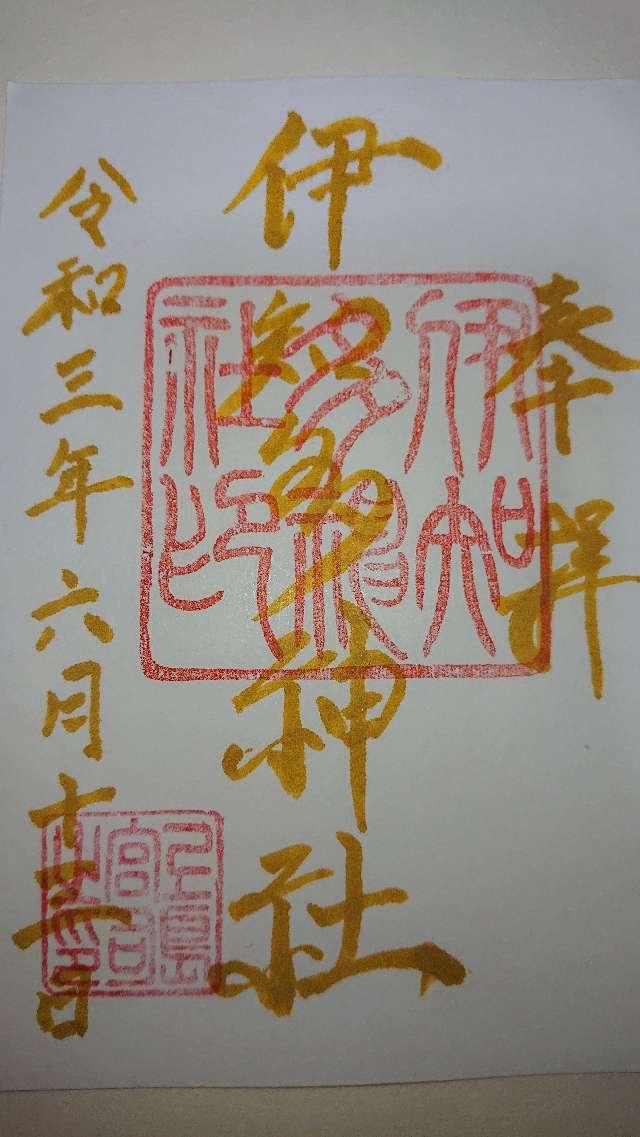 奉拝
伊知多神社
令和三年六月十日
伊知
多神
社印
島
宮司
之印